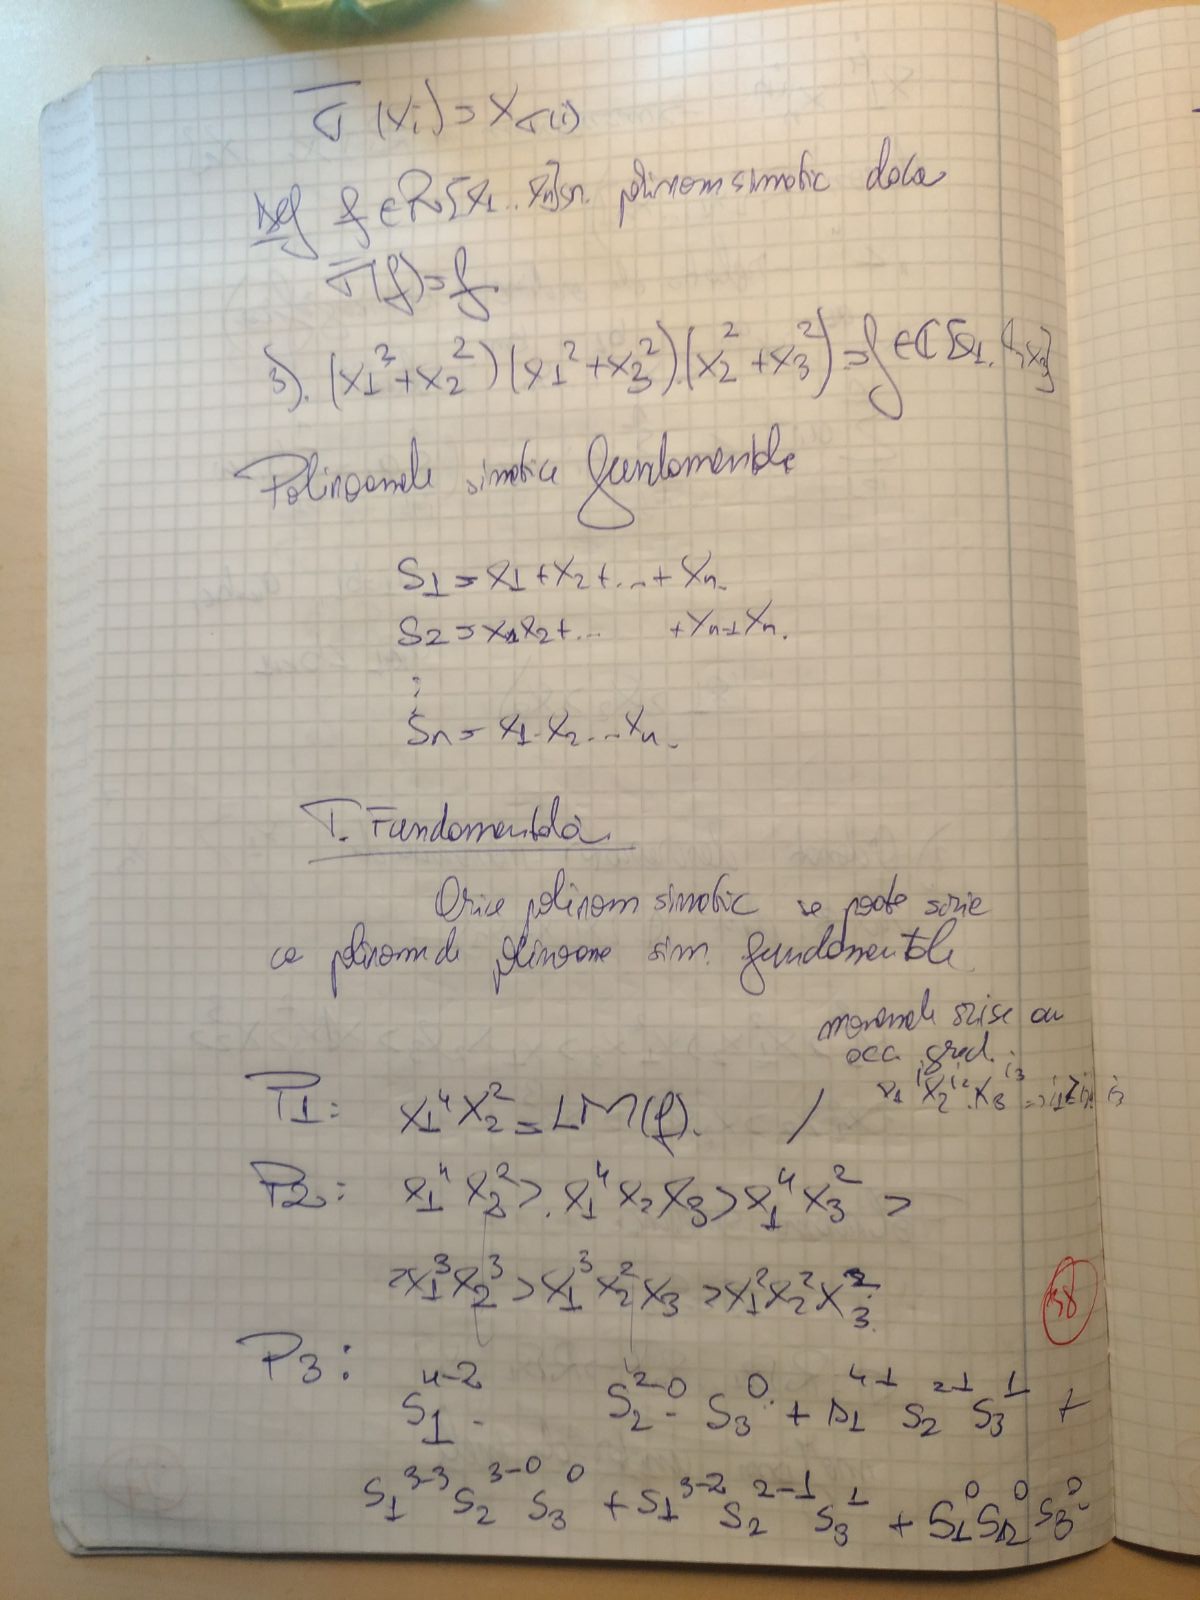 σ̅(xi) = xσ(i)
Def f ∈ R[x1 .. xn] sn. polinom simetric daca
σ̅(f) = f
3). (x1² + x2²)(x1² + x3²).(x2² + x3²) = f ∈ C[x1, x3]
Polinoamele simetrice fundamentale
S1 = x1 + x2 + ... + xn.
S2 = x1x2 + ... + xn-1 xn.
⋮
Sn = x1 . x2 ... xn.
T. Fundamentala
Orice polinom simetric se poate scrie
ca polinom de polinoame sim. fundamentale
monoamele scrise au
acc. grad.
x1^i1 x2^i2 . x3^i3 => i1 ≥ i2 i3
P1: x1⁴ x2² = LM(f). /
P2: x1⁴ x2² > . x1⁴ x2 x3 > x1⁴ x3² >
> x1³ x2³ > x1³ x2² x3 > x1² x2² x3².
38
P3: S1^4-2 . S2^2-0 . S3^0 + s1^4-1 S2^2-1 S3^1 +
S1^3-3 S2^3-0 S3^0 + S1^3-2 S2^2-1 S3^1 + S1^0 S2^0 S3^0